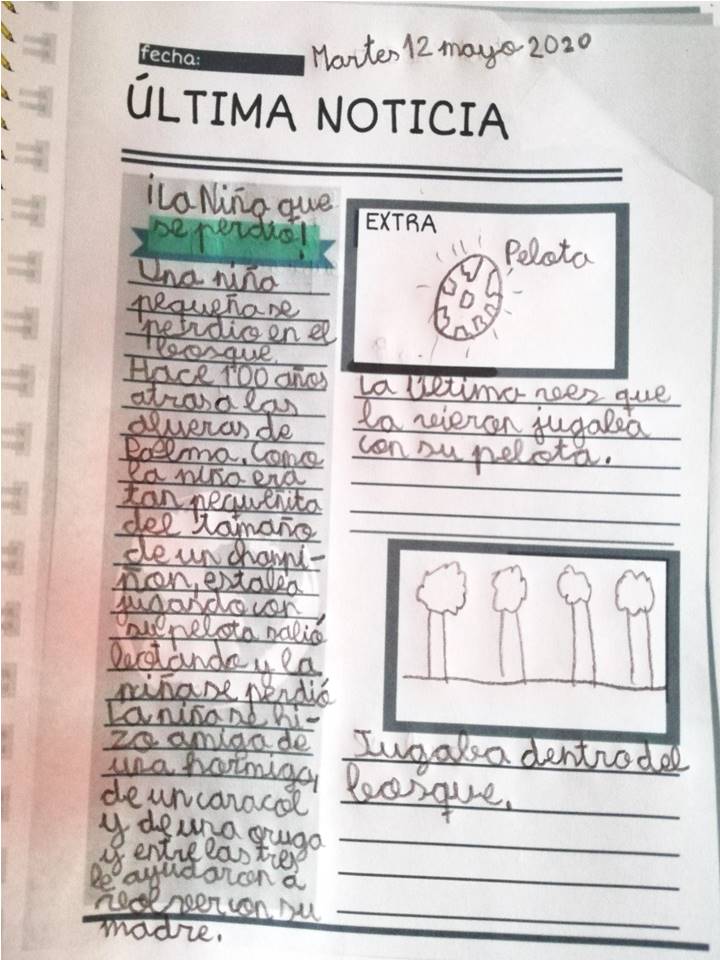 fecha:
Martes 12 mayo 2020
ÚLTIMA NOTICIA
¡La Niña que
se perdió!
Una niña
pequeña se
perdio en el
bosque
Hace 100 años
atras a las
afueras de
Palma. Como
la niña era
tan pequeñita
del tamaño
de un champi-
ñon, estaba
jugando con
su pelota salió
botando y la
niña se perdió
La niña se hi-
zo amiga de
una hormiga,
de un caracol
y de una oruga
y entre las tres
le ayudaron a
volver con su
madre.
EXTRA
Pelota
La Última vez que
la vieron jugaba
con su pelota.
Jugaba dentro del
bosque.